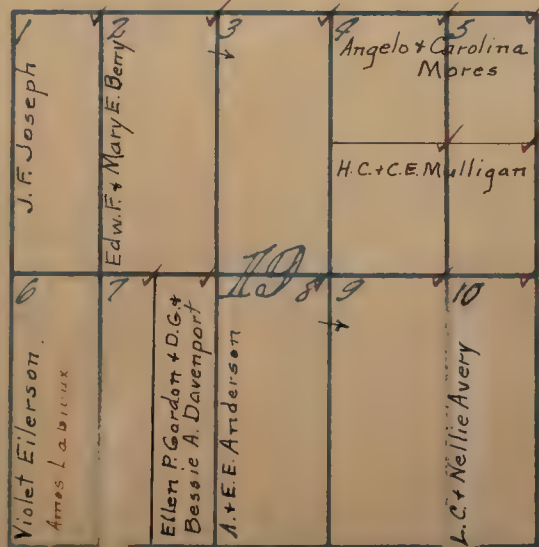 1
2
3
4
5
J. F. Joseph
Edw. F. & Mary E. Berry
Angelo & Carolina
Mores
H. C. & C. E. Mulligan
19
6
7
8
9
10
Violet Eilerson.
Amos Labieux
Ellen P. Gordon & D. G. &
Bessie A. Davenport
A. & E. E. Anderson
L. C. & Nellie Avery